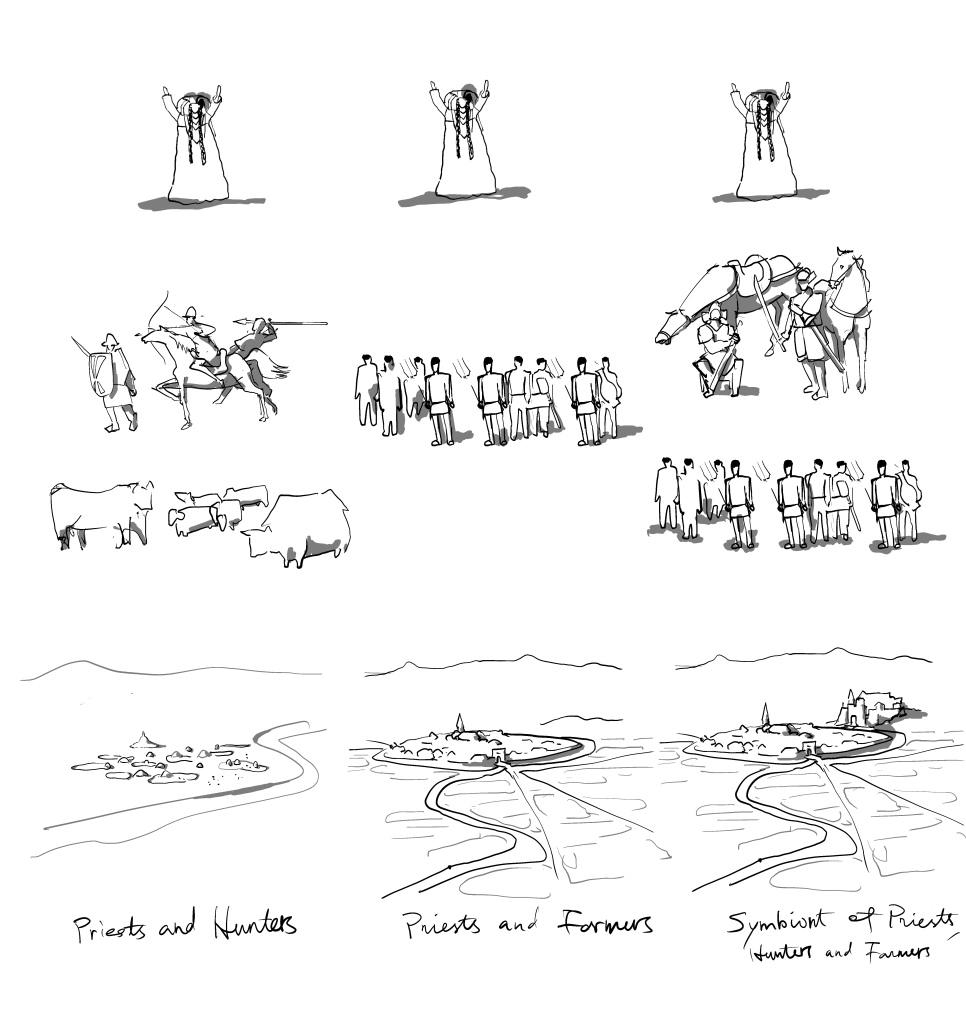 Priests and Hunters
Priests and Farmers
Symbiont of Priests,
Hunters and Farmers